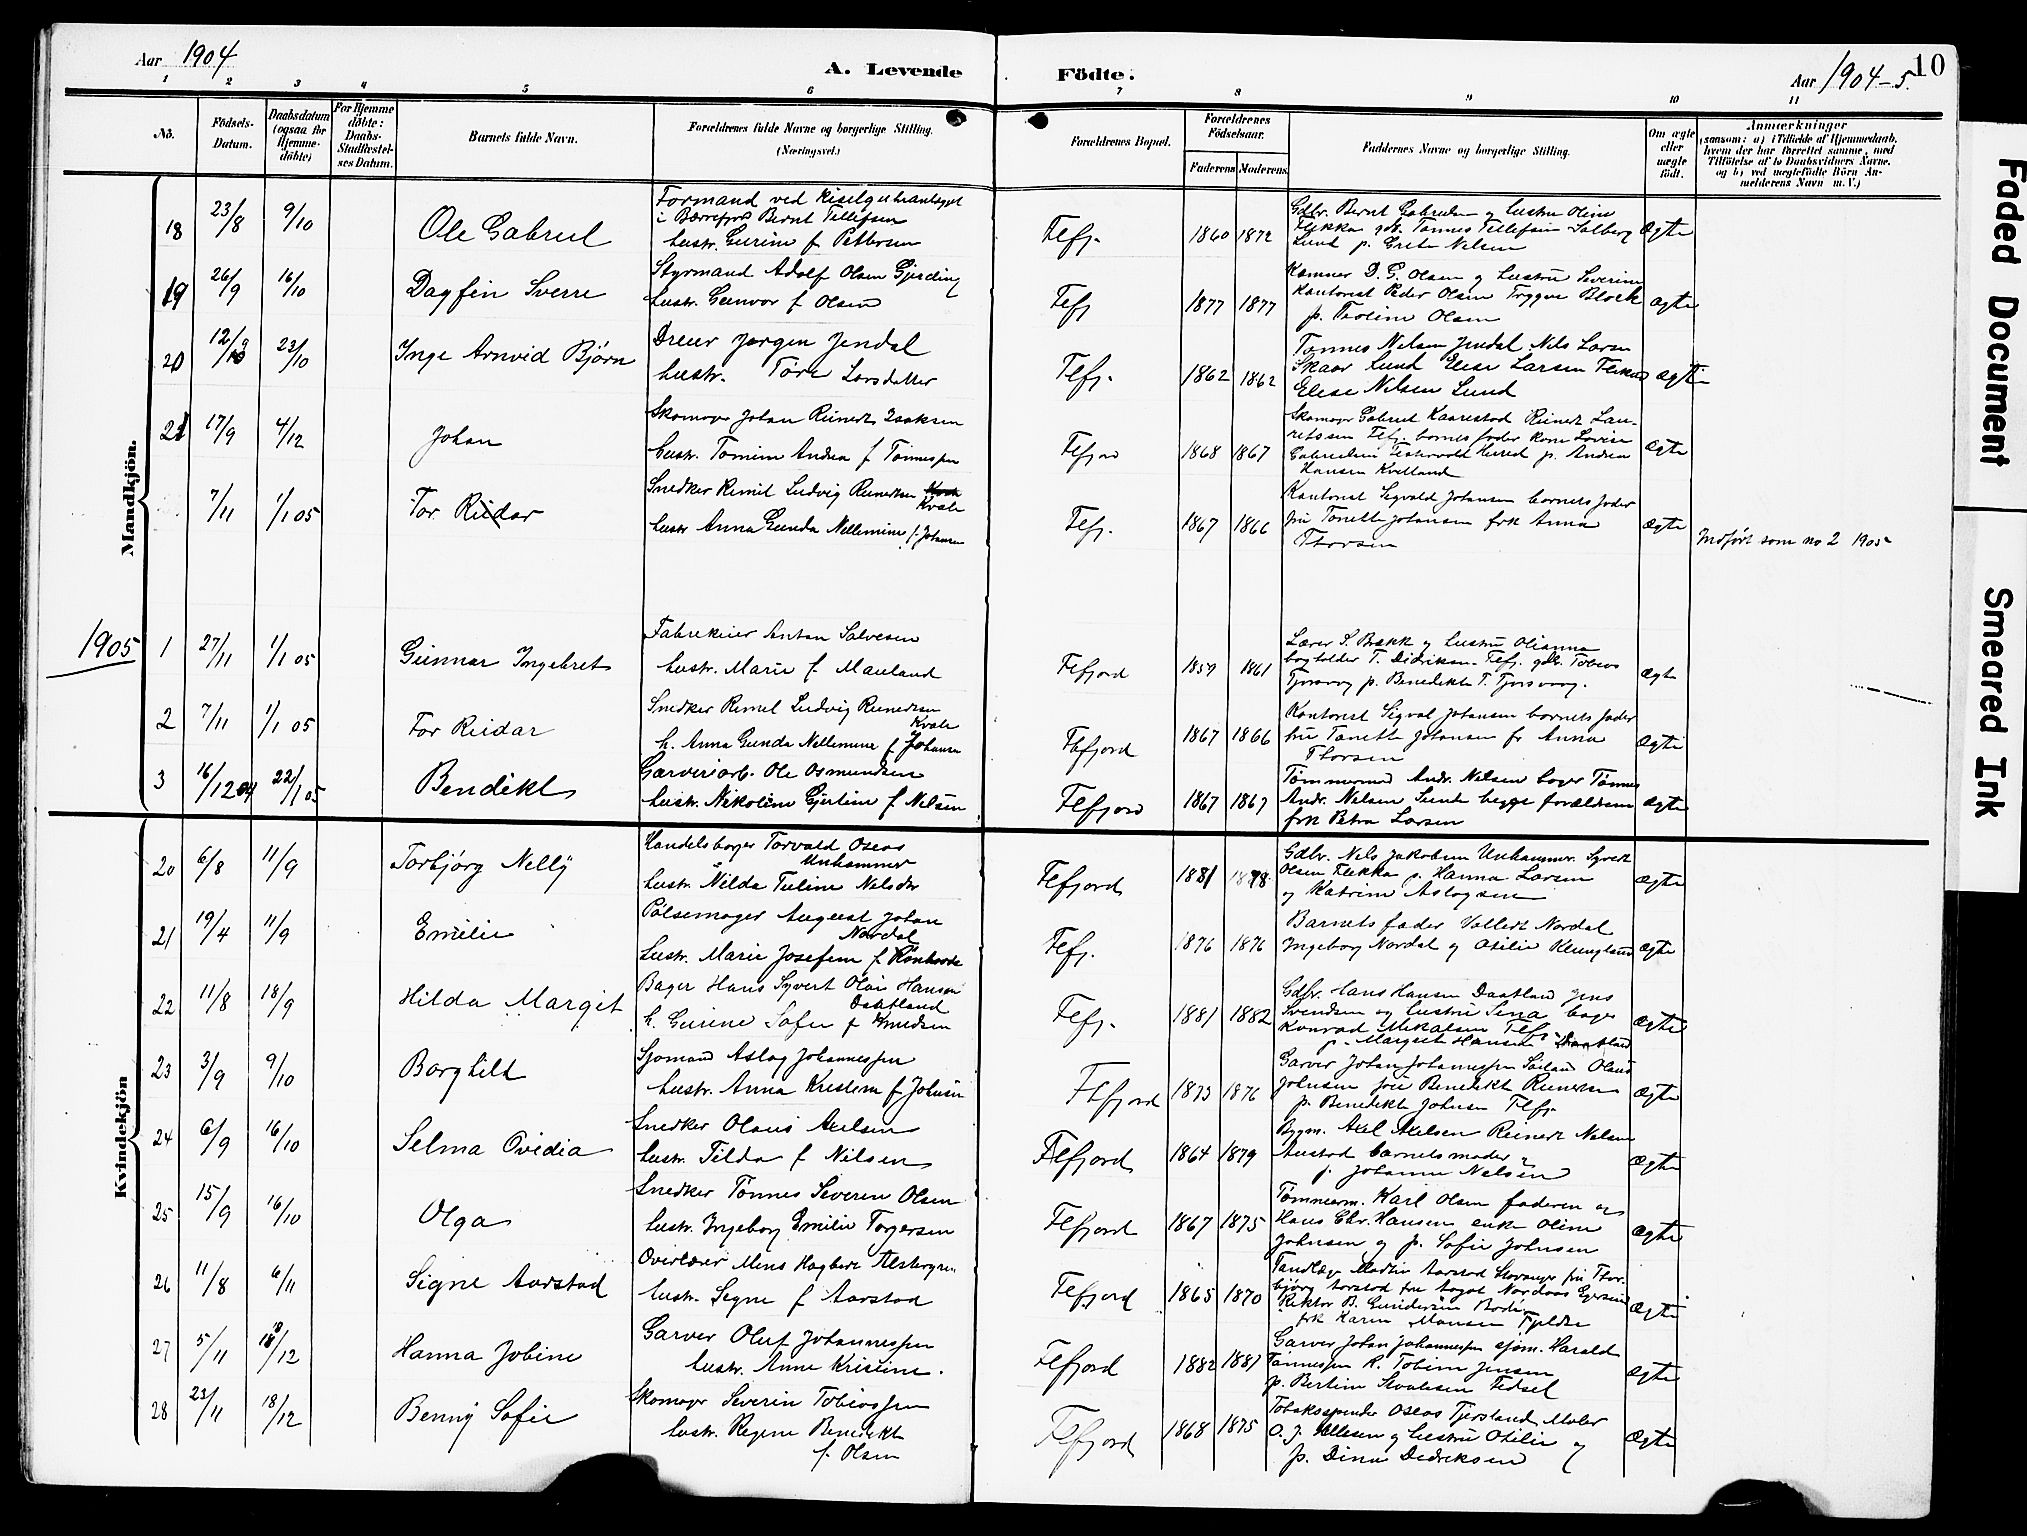 Aar 1904
A. Levende Födte.
Aar 1904-5.
10
1 2 3 4 5 6 7 8 9 10 11
No.
Födsels-Datum.
Daabsdatum (ogsaa for Hjemme-döbte)
For Hjemme döbte: Daabs-Stadfæstel-ses Datum.
Barnets fulde Navn.
Forældrenes fulde Navne og borgerlige Stilling. (Næringsvei.)
Forældrenes Bopæl.
Forældrenes Födselsaar.
Faderens Moderens
Faddernes Navne og borgerlige Stilling.
Om ægte eller uægte födt.
Anmærkninger
(saasom: a) i Tilfælde af Hjemmedaab,
hvem der har forrettet samme, med
Tilföielse af to Daabsvidners Navne,
og b) ved uægtefödte Börn An-
melderens Navn m. V.)
Mandkjön.
18 23/8 9/10 Ole Gabriel
Formand ved
i Bernt Tellefsen
hustr. Gurine f. Pettersen
Flefj. 1860 1872
Gdbr. Bernt Gabrielsen og hustru Oline
Flikka gdb. Tønnes Tellefsen Solberg
Lund p. Grete Nilsen
Ægte
19 26/9 16/10 Dagfin Sverre
Styrmand Adolf Olsen Gjerding
hustr. Gunvor f. Olsen
Flefj 1877 1877
Kæmner D. G. Olsen og hustru Severine
Kontorist Peder Olsen Trygve Block
p. Oline Olsen
Ægte
20 12/9 23/10 Inge Arnvid Bjørn
Dreier Jørgen Jendal
hustr. Tøre Larsdatter
Flefj. 1862 1862
Tønnes Nilsen Jendal Nils Larsen
Skaar Lund Elise Larsen
Elise Nilsen Lund
Ægte
21 17/9 4/12 Johan
Skomager Johan Reinert Isaksen
hustr. Tomine Andrea f. Tønnesen
Flefjord 1868 1867
Skomager Gabriel Kaarestad Reinert Lau-
ritssen Flefj. barnets fader kone Lovise
Gabrielsen Herred p. Andrea
Hansen Kvelland
Ægte
7/11 1/1 05 Tor Reidar
Snedker Remil Ludvig Reinertsen Kvale
hustr Anna Gunda Nellemine f. Johansen
Flefj. 1867 1866
Kontorist Sigvald Johansen barnets fader
fru Tonette Johansen frk Anna
Thorsen
Ægte
Indført som no 2 1905
1905
1 27/11 1/1 05 Gunnar Ingebret
Fabrikeier Anton Salvesen
hustr. Marie f. Mauland
Flefjord 1859 1861
Lærer S. Bakk og hustru Olianna
bogholder T. Didriksen Flefj. gdb. Tobias
Tjorsvaag p. Benedikte T. Tjorsvaag.
Ægte
2 7/11 1/1 05 Tor Reidar
Snedker Remil Ludvig Reinertsen
Kvale
h. Anna Gunda Nellemine f. Johansen
Flefjord 1867 1866
Kontorist Sigval Johansen barnets fader
fru Tonette Johansen fr Anna
Thorsen
Ægte
3 16/12 04 22/1 05 Bendikt
Garveriarb. Ole Osmundsen
hustr. Nikoline Gjertine f. Nilsen
Flefjord 1867 1867
Tømmermd Andr. Nilsen bager Tønnes
Andr. Nilsen Lunde begge forældrene
frk Petra Larsen
Ægte
Kvindekjön
20 6/8 11/9 Torbjørg Nelly
Handelsborger Torvald Oseas
Unhammer
hustr. Nilda Tuline Nilsdtr
Flefjord 1881 1878
Gdbr. Nils Jakobsen Unhammer. Syvert
Olsen Flikka p. Hanna Larsen
og Katrine Aslagsen
Ægte
21 19/4 11/9 Emilie
Pølsemager August Johan
Nordal
hustr. Marie Josefine f.
Flefj. 1876 1876
Barnets fader Vallert Nordal
Ingeborg Nordal og Otilie Klungland
Ægte
22 11/8 18/9 Hilda Margit
Bager Hans Syvert Olai Hansen
Daatland
h. Gurine Sofie f. Knudsen
Flefj. 1881 1882
Gdbr. Hans Hansen Daatland Jens
Svendsen og hustru Sina bager
Konrad Mikalsen Flefj.
p. Margrete Hansen Daatland
Ægte
23 3/9 9/10 Borghild
Sjømand Aslag Johannessen
hustr. Anna Kristine f. Johnsen
Flefjord 1873 1876
Garver Johan Johannessen Olaus
Johnsen frue Benedikte Reinertsen
p. Benedikte Johnsen Flefj.
Ægte
24 6/9 16/10 Selma Ovidia
Snedker Olaus Axelsen
hustr. Tilda f. Nilsen
Flefjord 1864 1879
Bygm. Axel Axelsen Reinert Nilsen
Austad barnets moder &
p. Johanne Nilsen
Ægte
25 15/9 16/10 Olga
Snedker Tønnes Severin Olsen
hustr. Ingeborg Emilie Torgersen
Flefjord 1867 1875
Tømmerm. Karl Olsen faderen og
Hans Chr. Hansen enke Oline
Johnsen og p. Sofie Johnsen
Ægte
26 11/8 6/11 Signe Aarstad
Overlærer Mons Hagbart
hustr. Signe f. Aarstad
Flefjord 1865 1870
Tandlæge Martin Aarstad Stavanger fru Thor-
bjørg Aarstad fru Aagot Nordaas Egersund
Rektor B. Gundersen Bodø
frk Karen Monsen
Ægte
27 5/11 18/12 Hanna Jobine
Garver Oluf Johannessen
hustr. Anne Kristine.
Flefjord 1882 1881
Garver Johan Johannessen sjøm. Harald
Tønnessen K. Tobine Jensen
p. Bertine Fedsel
Ægte
28 23/11 18/12 Benny Sofie
Skomager Severin Tobiassen
hustr. Regine Benedikte
f. Olsen
Flefjord 1868 1875
Tobaksspinder Oseas Tjersland Maler
O. J. Ellesen og hustru Otilie og
p. Dina Didriksen
Ægte
Faded Document
Smeared Ink